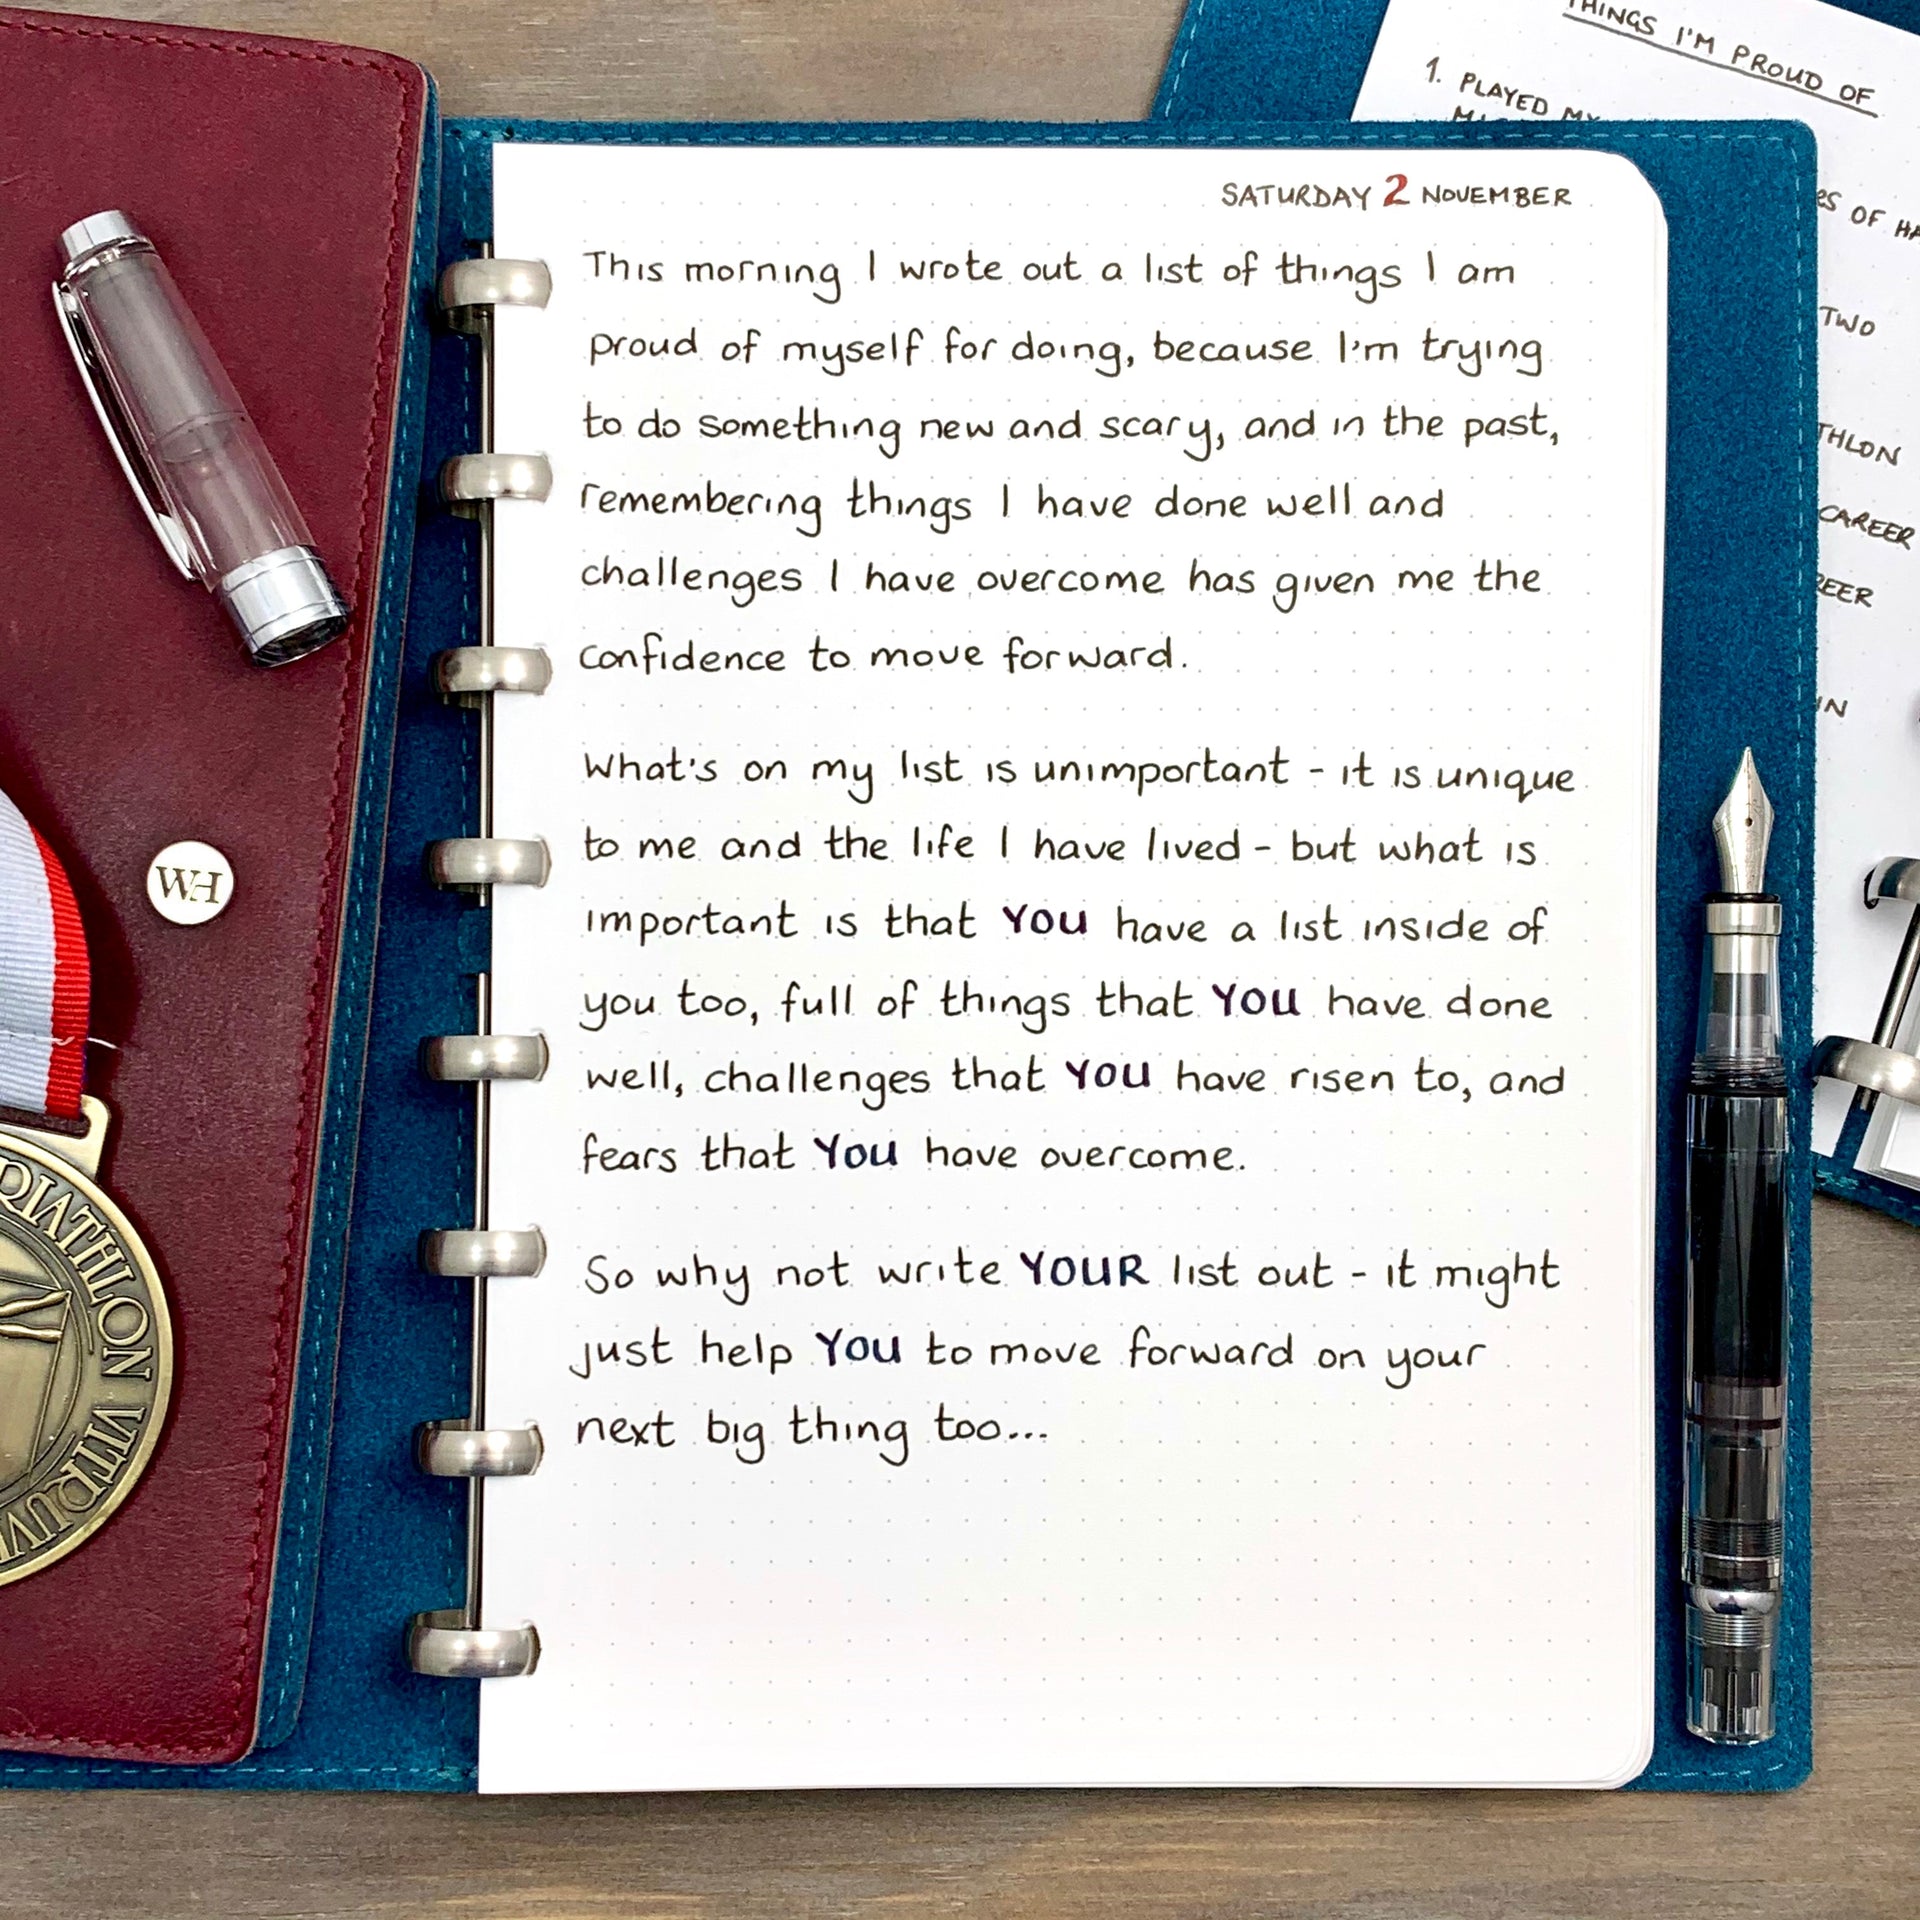 THINGS I'M PROUD OF
1. PLAYED MY
ES OF
TWO
THLON
CAREER
EER
IN
SATURDAY 2 NOVEMBER
This morning I wrote out a list of things I am
proud of myself for doing, because I'm trying
to do something new and scary, and in the past,
remembering things I have done well and
challenges I have overcome has given me the
confidence to move forward.
What's on my list is unimportant - it is unique
to me and the life I have lived - but what is
important is that YOU have a list inside of
you too, full of things that YOU have done
well, challenges that YOU have risen to, and
fears that YOU have overcome.
So why not write YOUR list out - it might
just help YOU to move forward on your
next big thing too...
WH
RIATHLON VITRUV